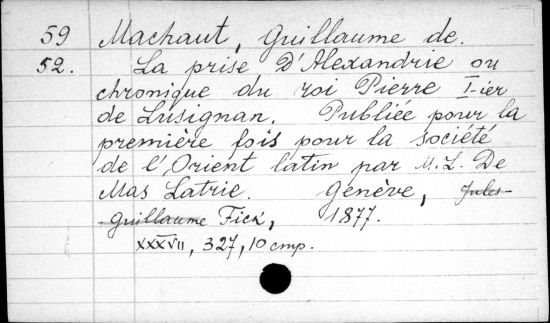 59 Machaut, Guillaume de.
52. La prise D'Alexandrie ou
chronique du roi Pierre I-ier
de Lusignan. Publiée pour la
première fois pour la société
de l'Orient latin par M.L. De
Mas Latrie. Genève, Jules-
Guillaume Fick, 1877.
XXXVII, 327, 10 cmp.